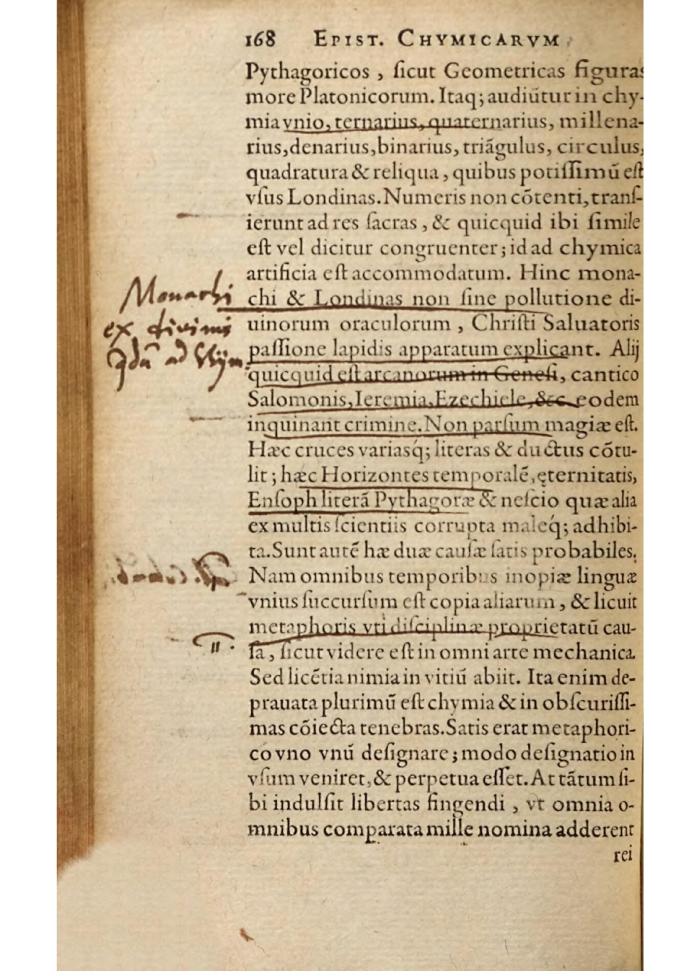 168 EPIST. CHYMICARVM
Pythagoricos , ſicut Geometricas figuras
more Platonicorum. Itaq; audiũtur in chy-
mia vnio, ternarius, quaternarius, millena-
rius, denarius, binarius, triãgulus, circulus,
quadratura & reliqua , quibus potiſſimũ eſt
vſus Londinas. Numeris non cõtenti, tranſ-
ierunt ad res ſacras , & quicquid ibi ſimile
eſt vel dicitur congruenter ; id ad chymica
artificia eſt accommodatum. Hinc mona-
chi & Londinas non ſine pollutione di-
uinorum oraculorum , Chriſti Saluatoris
paſſione lapidis apparatum explicant. Alij
quicquid eſt arcanorum in Geneſi, cantico
Salomonis, Ieremia, Ezechiele, &c. eodem
inquinant crimine. Non parſum magiæ eſt.
Hæc cruces variasq́; literas & ductus cõtu-
lit ; hæc Horizontes temporalẽ, ęternitatis,
Enſoph literã Pythagoræ & neſcio quæ alia
ex multis ſcientiis corrupta maleq́; adhibi-
ta. Sunt autẽ hæ duæ cauſæ ſatis probabiles.
Nam omnibus temporibus inopiæ linguæ
vnius ſuccurſum eſt copia aliarum , & licuit
metaphoris vti diſciplinæ proprietatũ cau-
ſa , ſicut videre eſt in omni arte mechanica.
Sed licẽtia nimia in vitiũ abiit. Ita enim de-
prauata plurimũ eſt chymia & in obſcuriſſi-
mas cõiecta tenebras. Satis erat metaphori-
co vno vnũ deſignare ; modo deſignatio in
vſum veniret, & perpetua eſſet. At tãtum ſi-
bi indulſit libertas fingendi , vt omnia o-
mnibus comparata mille nomina adderent
rei
Monachi
ex divinis
ad